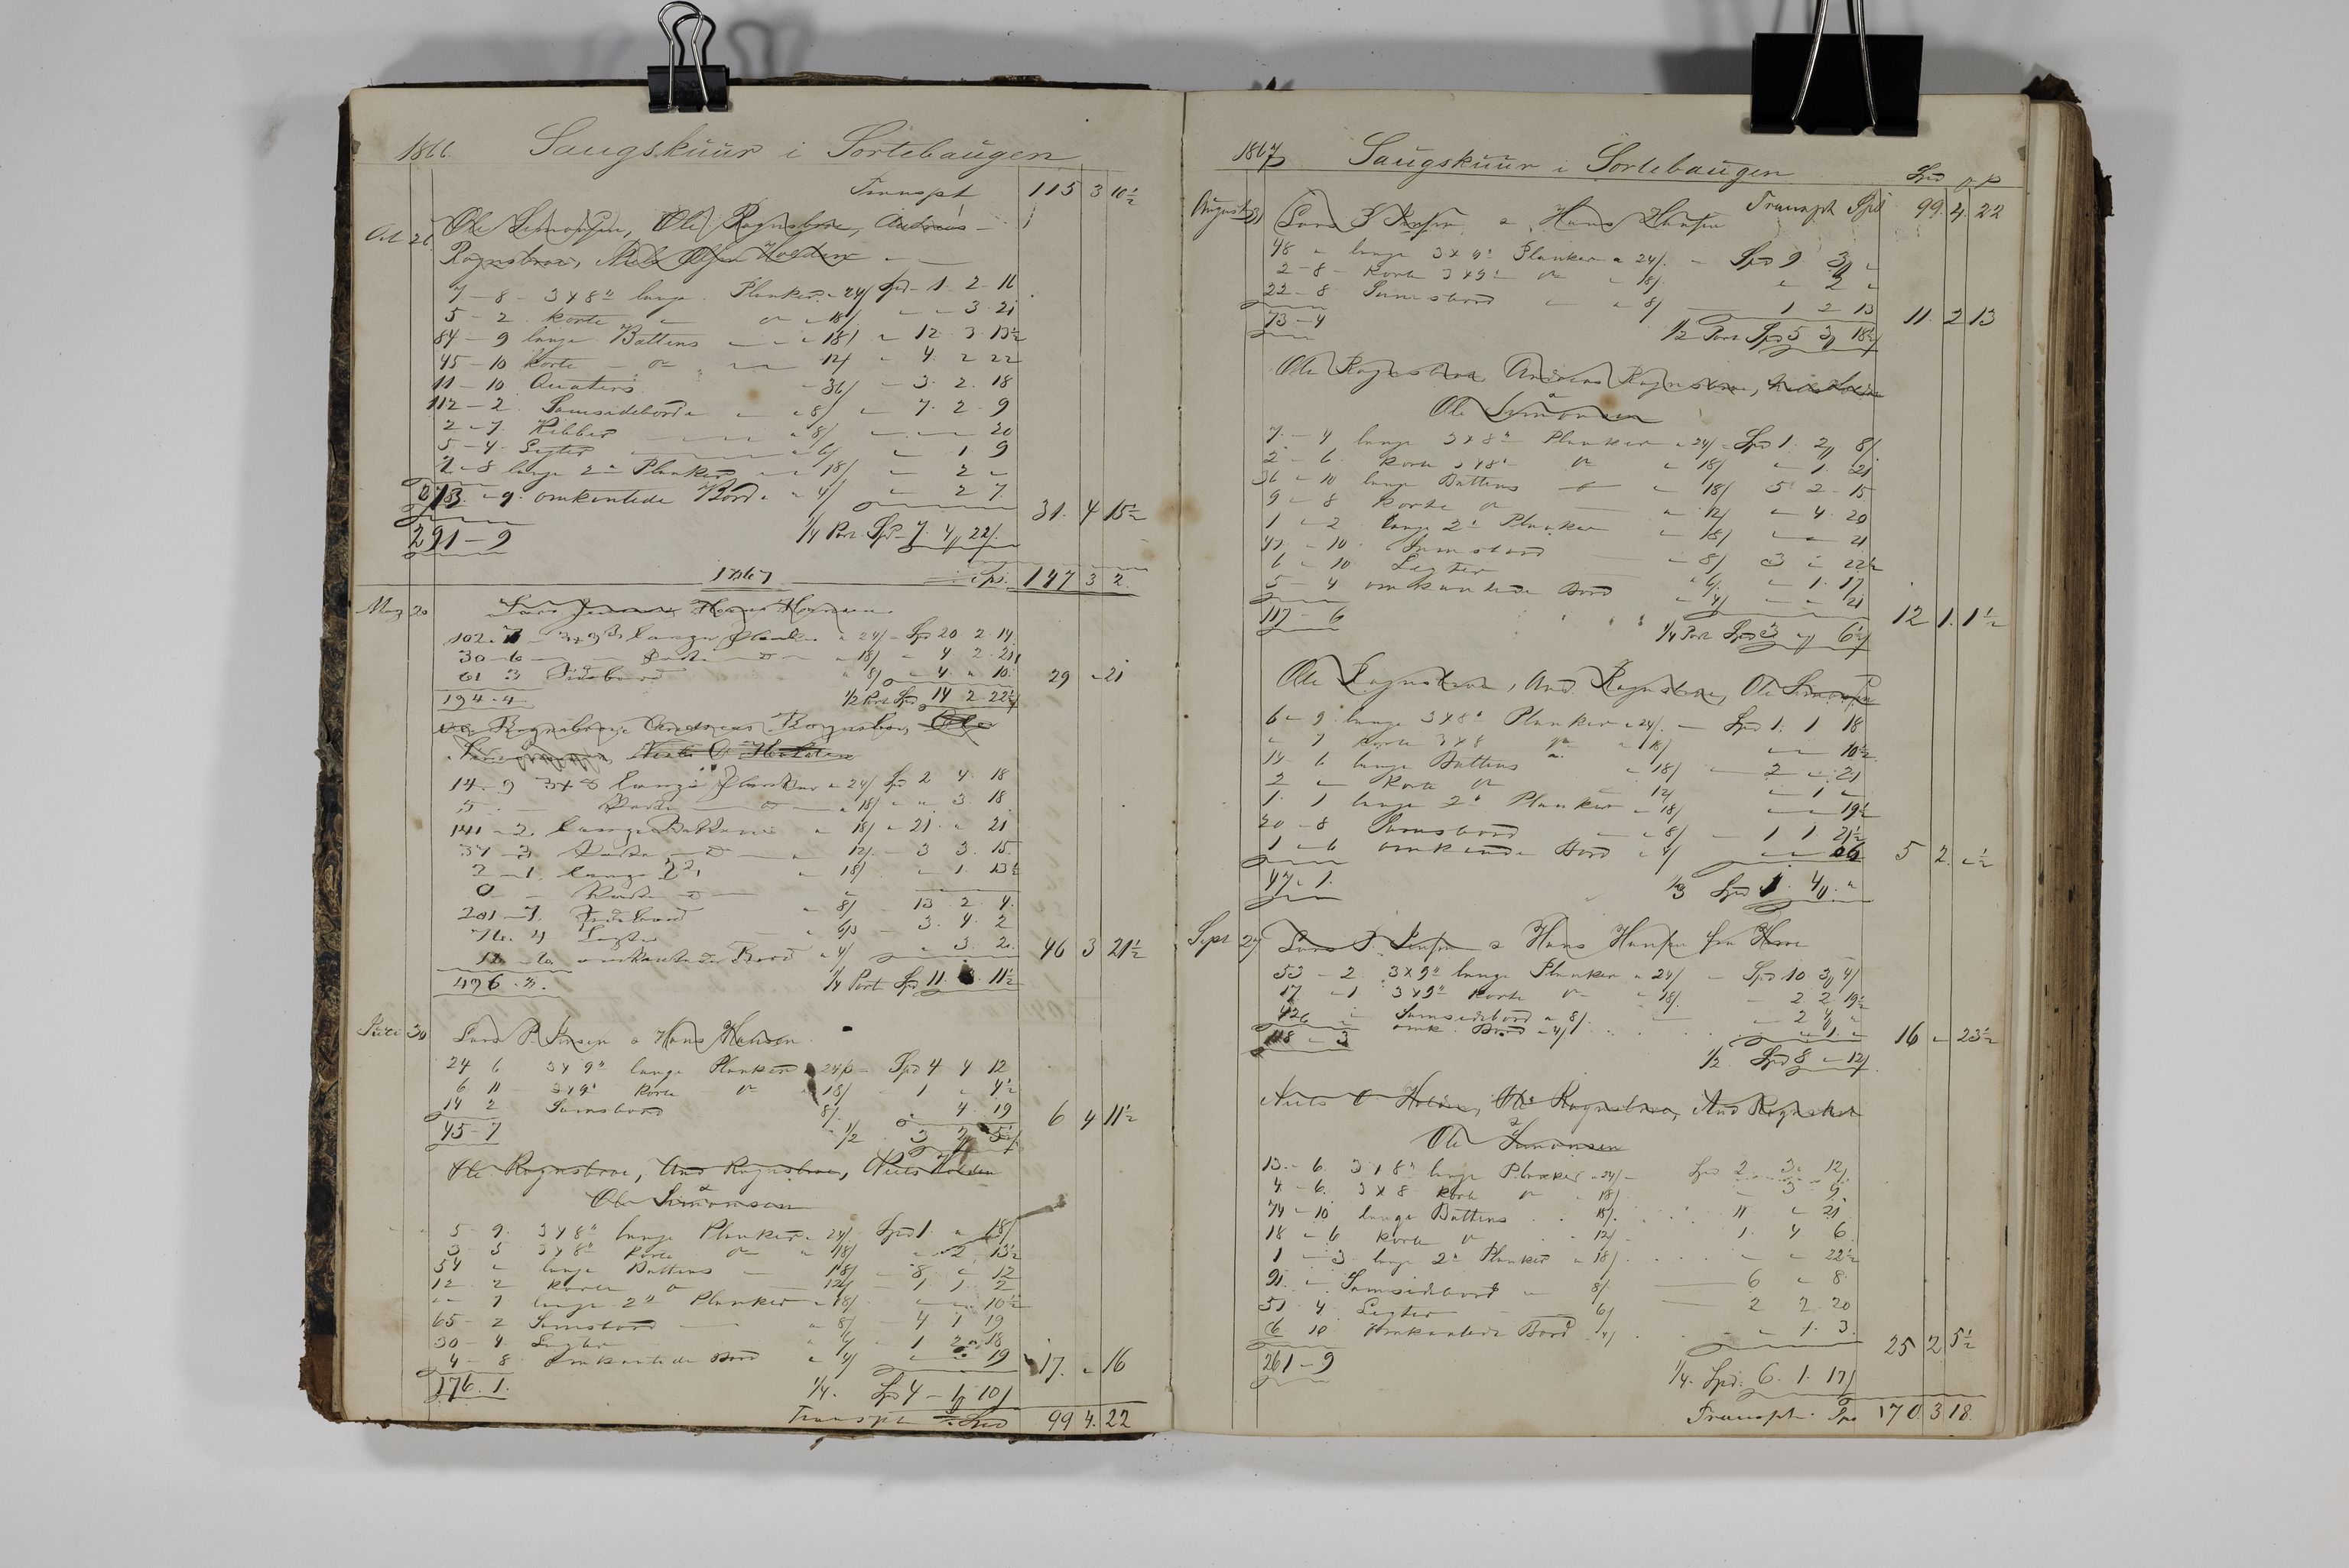 1866. Saugskuur i Sortebaugen
Transpt 115 3 10½
Oct 26 Ole Simonsen, Ole Rognsbroe, Andreas
Rognsbroe, Niels Olsen Holden
7 – 8 – 3x8" lange Planker a 24/ Spd 1. 2. 16
5 – 2 korte " do " 18/ " – 3. 21
84 – 9 lange Battens – – " 18/ " 12. 3. 13½
45 – 10 korte – do – 12/ " 4. 2. 22
11 – 10 Quaters 36/ – 3. 2. 18
112 – 2. Samsidebord – " 8/ " 7. 2. 9
2 – 7. – " 8/ – 20
5 – 4. Legter – " 6/ " 1 9
2 – 8 lange 2" Planker – " 18/ " 2 "
13 – 9. omkantede Bord " " 4/ " 2 7. 31. 4 15½
291 – 9 ¼ Part Spd 7. 4 22/
1867 Spd. 147 3 2.
May 20 Lars Jensen Hans Hansen
102. 7 – 3x9" lange Planker a 24/ – Spd 20 2 14
30 – 6 – korte – do – " 18/ " 4 2 21
61 3 Sidebord " 8/ " 4 " 10. 29 " 21
194. 4 ½ Part Spd 14 2 22½
Ole Rognsbroe, Andreas Rognsbroe, Ole
Simonsen, Niels O Holden
14. 9 3x8 lange Planker a 24/ Spd 2 4. 18
5 – korte – do – " 18/ " " 3. 18
141 – 2. lange Battens " 18/ " 21. " 21
37 – 3 korte – do – " 12/. – 3 3. 15
2 – 1. lange 2" " 18/ " 1. 13½
0 – korte do –
201 – 7. Sidebord " 8/ – 13 2 4.
76. 4 Legter " 6/ – 3. 4. 2
omkantede Bord " 4/ " 3. 2. 46 3 21½
496. 4. ¼ Part Spd 11. 3. 11½
30 Lars P. Jensen & Hans Hansen
24 6 3x9" lange Planker " 24/ – Spd 4 4 12
6 11 – 3x9" korte do " 18/ – 1 " 4½
14 2 Samsbord 8/. " 4 19 6 4 11½
45 – 7 ½ 3 2 5½
Ole Rognsbroe, And Rognsbroe, Niels Holden
& Ole Simonsen
5 – 9. 3x8" lange Planker " 24/ Spd 1 " 18/
3 – 5 3x8" korte do " 18/ " 2 13½
54 " lange Battens – 18/ – 8 " 12
12 – 2 korte do – 12/ – 1 1. 2
" – 7 lange 2" Planker – 18/. – " 10½
65 – 2 Samsbord – " 8/ 4 1 19
30 – 4. Legter " 6/ – 1 2 18
4 – 8 omkantede Bord " 4/ " – 19 17. " 16
176. 1. ¼. Spd 4 – 1 10/
Transpt Spd 99 4. 22
1867 Saugskuur i Sortebaugen Spd
August 31 Lars P Jensen & Hans Hansen Transpt Spd 99. 4. 22
48 " lange 3x9" Planker a 24/. – Spd 9. 3 "
2 – 8 – korte 3x9" do " 18/. " 2 "
22 – 8 Samsbord – " 8/ 1 2 13 11. 2 13
73 – 4 ½ Part Spd 5 3 18½
Ole Rognsbroe, Andreas Rognsbroe, Niels Holden
& Ole Simonsen
7. – 4 lange 3x8" Planker " 24/ – Spd 1. 2 8/
2 – 6. korte 3x8" do " 18/ " 1. 21
36 – 10 lange Battens " 18/ 5 2 – 15
9 – 8 korte do " 12/ " 4. 20
1 – 2 lange 2" Planker " 18/ " " 21
47 – 10. Samsbord – 8/ 3 " 22½
6 – 10 Legter " 6/. " 1. 17
5 – 4 omkantede Bord " 4/ " " 21
117 – 6 ¼ Part Spd 3 " 6½ 12 1. 1½
Ole Rognsbroe, And. Rognsbroe, Ole Simonsen
6 – 9 lange 3x8" Planker " 24/. – Spd 1. 1 18
" 7 korte 3x8 do " 18/ " 10½
14 – 6 lange Battens " 18/ – 2 " 21
2 " korte do 12/ – 1 "
1. 1 lange 2" Planker " 18/ " " 19½
20 – 8 Samsbord " 8/ – 1 1. 21½
1 – 6 omkantede Bord " 4/ " " 06 5 2. " ½
47 " 1. ⅓ Spd 1. 4. "
Sept 27 Lars P. Jensen & Hans Hansen fra
53 – 2. 3x9" lange Planker " 24/ – Spd 10 3 4/
17 – 1 3x9" korte do " 18/. – 2 2 19½
Samsidebord " 8/ – 2 4 "
omk. Bord " 4/ " 1. " 16 " 23½
118 – 3 ½ Spd 8 – 12/.
Niels O Holden, Ole Rognsbroe, And Rognsbroe
& Ole Simonsen
13. – 6. 3x8" lange Planker " 24/ – Spd 2. 3 12
4 – 6. 3x8 korte do 18/. – 3 9.
74 – 10 lange Battens 18/. 11 " 21
18 – 6 korte do 12/ 1. 4 6
1 – 3 lange 2" Planker " 18/ " " 22½
91. " Samsidebord " 8/ – 6 " 8.
51. 4 Legter 6/ 2 2. 20
6 10 Omkantede Bord 4/ – " 1. 3. 25 2 5½
261 – 9 ¼. Spd. 6. 1. 17/
Transpt. Spd 170 3 18.